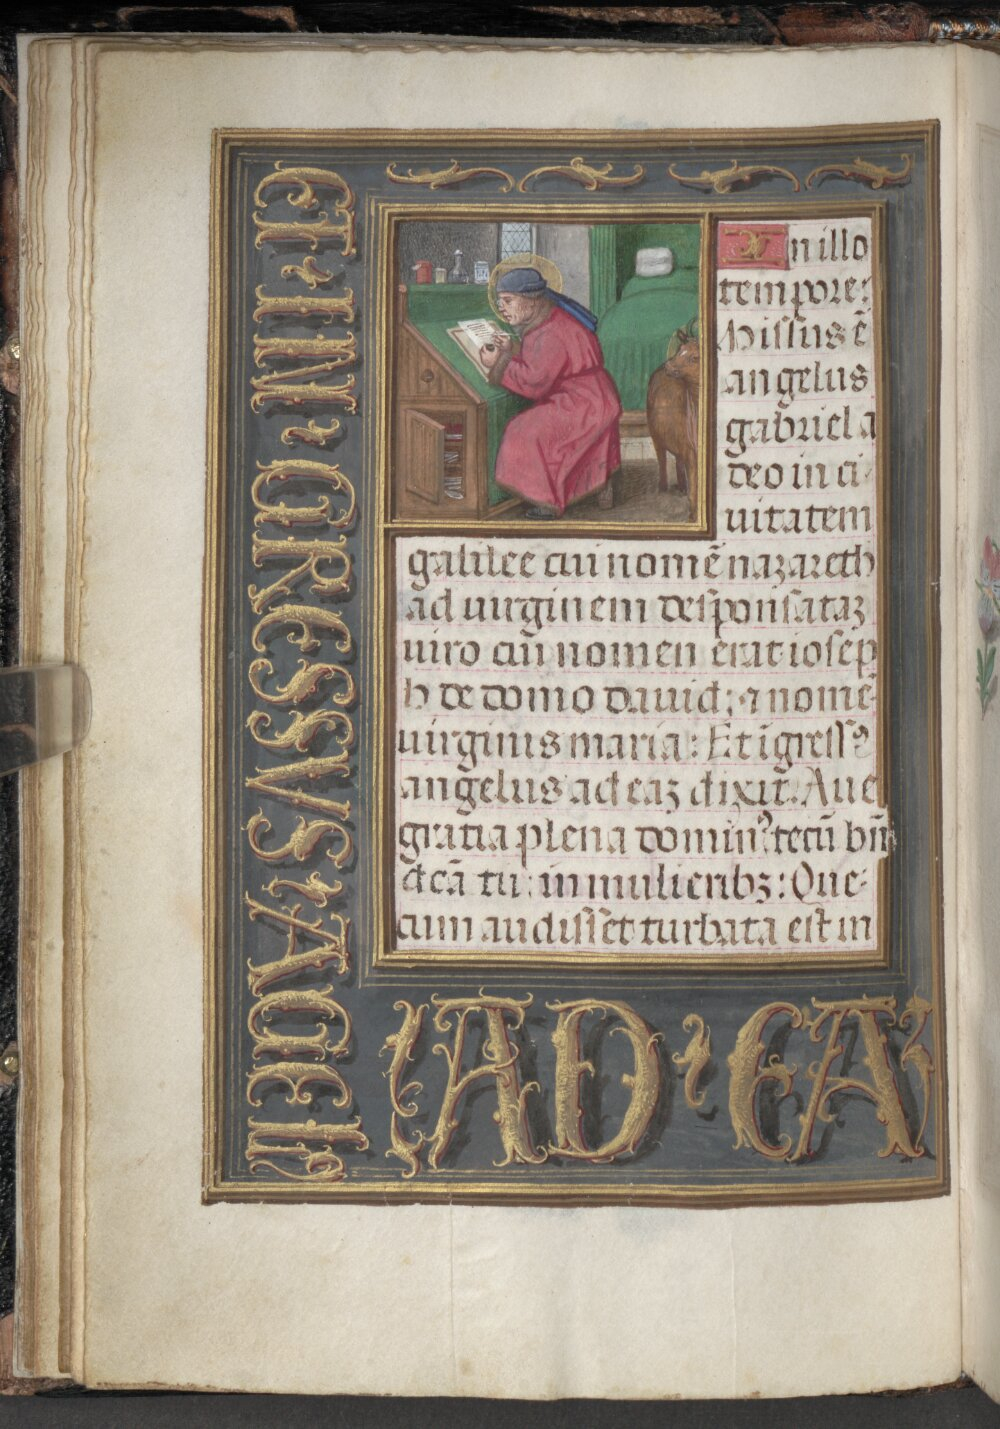 In illo
tempore:
Missus ē
angelus
gabriel a
deo in ci
uitatem
galilee cui nomē nazareth
ad uirginem desponsataʒ
uiro cui nomen erat iosep
h de domo dauid: ⁊ nomē
uirginis maria: Et īgressꝰ
angelus ad eaʒ dixit. Aue
gratia plena dominꝰ tecū bn̄
dcā tu in mulieribʒ: Que
cum audisset turbata est in
ET · IN · GRESSVS · AGEL
AD · EA